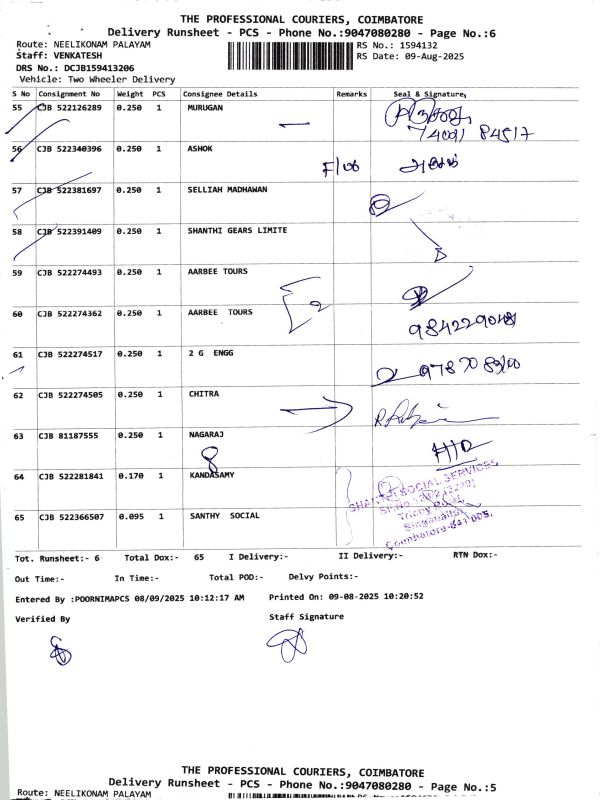 THE PROFESSIONAL COURIERS, COIMBATORE
Delivery Runsheet - PCS - Phone No.:9047080280 - Page No.:6
Route: NEELIKONAM PALAYAM RS No.: 1594132
Staff: VENKATESH RS Date: 09-Aug-2025
DRS No.: DCJB159413206
Vehicle: Two Wheeler Delivery
S No Consignment No Weight PCS Consignee Details Remarks Seal & Signature
55 CJB 522126289 0.250 1 MURUGAN
56 CJB 522340396 0.250 1 ASHOK
57 CJB 522381697 0.250 1 SELLIAH MADHAWAN
58 CJB 522391409 0.250 1 SHANTHI GEARS LIMITE
59 CJB 522274493 0.250 1 AARBEE TOURS
60 CJB 522274362 0.250 1 AARBEE TOURS
61 CJB 522274517 0.250 1 2 G ENGG
62 CJB 522274505 0.250 1 CHITRA
63 CJB 81187555 0.250 1 NAGARAJ
64 CJB 522281841 0.170 1 KANDASAMY
SHANTHI SOCIAL SERVICES
65 CJB 522366507 0.095 1 SANTHY SOCIAL
Trichy Road,
Singanallur,
Coimbatore-641 005.
Tot. Runsheet:- 6 Total Dox:- 65 I Delivery:- II Delivery:- RTN Dox:-
Out Time:- In Time:- Total POD:- Delvy Points:-
Entered By :POORNIMAPCS 08/09/2025 10:12:17 AM Printed On: 09-08-2025 10:20:52
Verified By Staff Signature
THE PROFESSIONAL COURIERS, COIMBATORE
Delivery Runsheet - PCS - Phone No.:9047080280 - Page No.:5
Route: NEELIKONAM PALAYAM